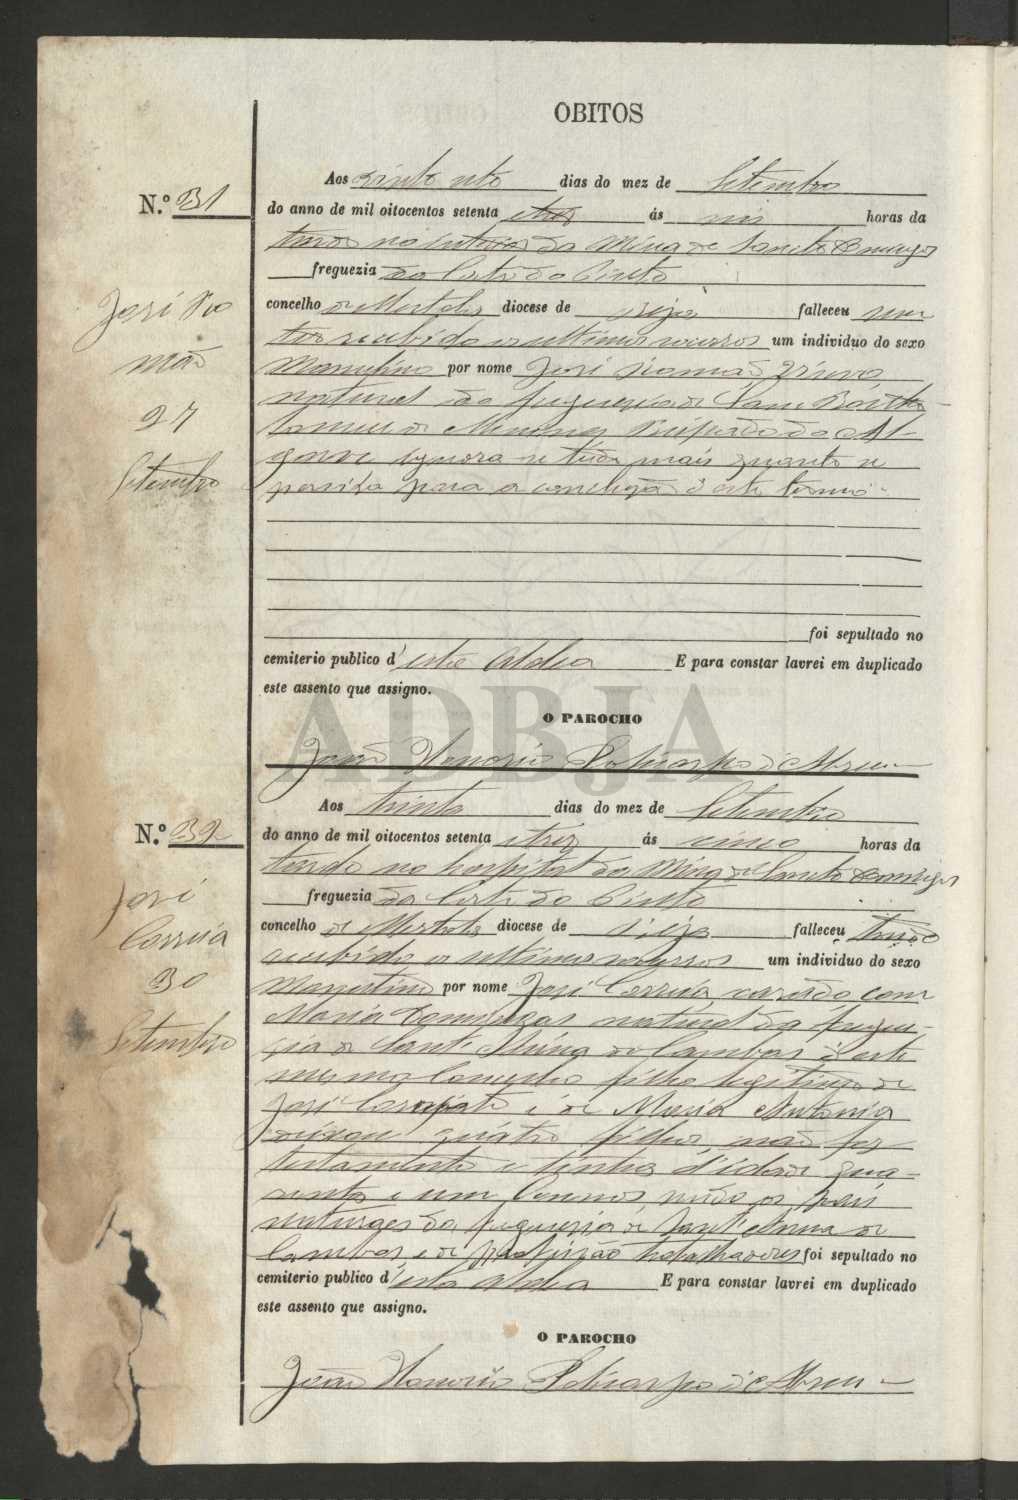 OBITOS
N.º 31
Aos vinte oito dias do mez de Setembro
do anno de mil oitocentos setenta e tres ás seis horas da
tarde no interior da Mina de Sancto Domingos
freguezia da Corte do Pinto
concelho de Mertola diocese de Beja falleceu sem
ter recebido os ultimos socorros um individuo do sexo
Masculino por nome José Romão
natural da freguesia de Sam Bartho
lomeu de Messines Bispado do Al-
garve ignora-se tudo mais quanto se
percisa para a concluzão d'este termo-
foi sepultado no
cemiterio publico d'esta Aldea E para constar lavrei em duplicado
este assento que assigno.
O PAROCHO
João Honorio Policarpo d'Abreu-
José Ro
mão
27
Setembro
N.º 32
Aos trinta dias do mez de Setembro
do anno de mil oitocentos setenta e trez ás cinco horas da
tarde no hospital da Mina de Sancto Domingos
freguezia da Corte do Pinto
concelho de Mertola diocese de Beja falleceu tendo
recebido os ultimos socorros um individuo do sexo
Masculino por nome José Correia casado com
Maria Domingas natural da fregue-
zia de Sant'Anna de Cambas d'este
mesmo Concelho filho legitimo de
José e de Maria Antonia
deixou quatro filhos, não fez
testamento e tinha d'idade qua-
renta e um annos sendo os pais
naturaes da freguesia de Sant'Anna de
Cambas e de profissão trabalhadores foi sepultado no
cemiterio publico d'esta Aldea E para constar lavrei em duplicado
este assento que assigno.
O PAROCHO
João Honorio Policarpo d'Abreu-
José
Correia
30
Setembro
ADBJA